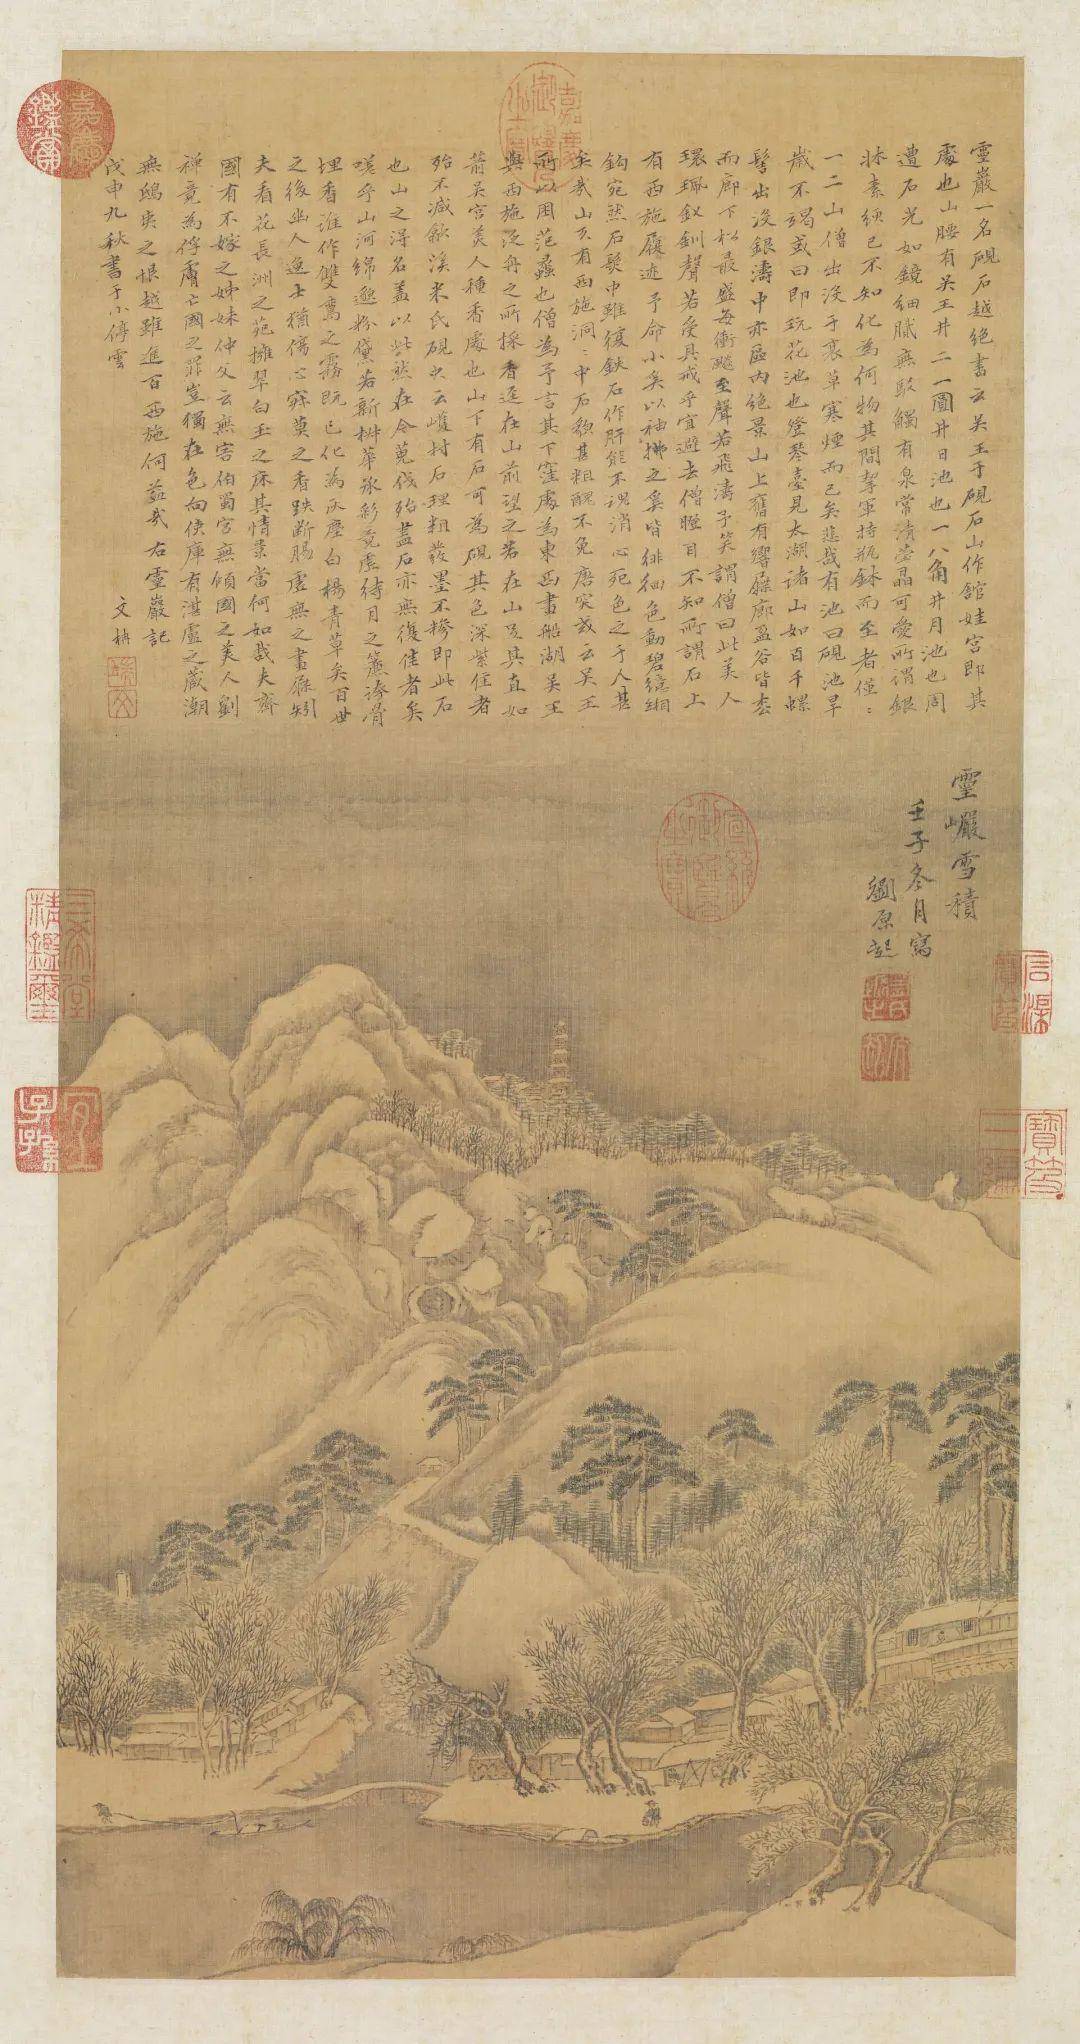 靈巖一名硯石越絕書云吳王于硯石山作館娃宮即其
處也山腰有吳王井二一圓井日池也一八角井月池也周
遭石光如鏡細膩無駁觸有泉常清瑩晶可愛所謂銀
牀素綆已不知化為何物其間挈軍持瓶鉢而至者僅〻
一二山僧出沒于衰草寒煙而已矣悲哉有池曰硯池旱
歲不竭或曰即玩花池也登琴臺見太湖諸山如百千螺
髻出沒銀濤中亦區內絕景山上舊有響屧廊盈谷皆松
而廊下松最盛每衝飈至聲若飛濤予笑謂僧曰此美人
環珮釵釧聲若受具戒乎宜避去僧瞪目不知所謂石上
有西施履迹予命小奚以袖拂之奚皆徘徊色動碧繶緗
鈎宛然石髮中雖復鉄石作肝能不魂消心死色之于人甚
矣哉山仄有西施洞〻中石貌甚粗醜不免唐突或云吳王
所以囚范蠡也僧為予言其下窪處為東西畫船湖吳王
與西施泛舟之所採香逕在山前望之若在山足其直如
箭吳宮美人種香處也山下有石可為硯其色深紫佳者
殆不減歙溪米氏硯史云蠖村石理粗發墨不糝即此石
也山之得名盖以此然在今蒐伐殆盡石亦無復佳者矣
嗟乎山河綿邈粉黛若新椒華沉彩竟虛待月之簾誇骨
埋香誰作雙鸞之霧既已化為灰塵白楊青草矣百世
之後幽人逸士猶傷心寂莫之香趺斷腸虛無之畫屧矧
夫看花長洲之苑擁翠白玉之床其情景當何如哉夫齊
國有不嫁之姊妹仲父云無害伯蜀宮無傾國之美人劉
禪竟為俘虜亡國之罪豈獨在色向使庫有湛盧之藏潮
無鴟夷之恨越雖進百西施何益哉 右靈巖記
戊申九秋書于小停雲
文
靈巗雪積
壬子冬月寫
劉原起
嘉慶御覽之寶
嘉慶鑑賞
宣統御覽之寶
三希堂精鑑璽
宜子孫
石渠寶笈
寶笈三編